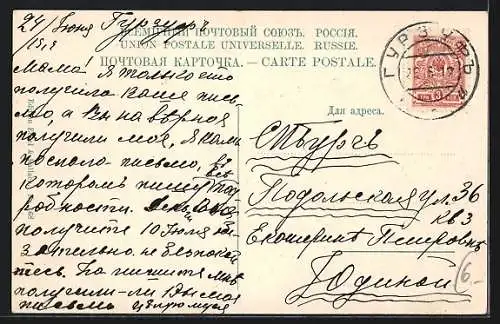 24/ Июня Гурзуфъ
15,8
ВСЕМІРНЫЙ ПОЧТОВЫЙ СОЮЗЪ. РОССІЯ.
UNION POSTALE UNIVERSELLE. RUSSIE.
ПОЧТОВАЯ КАРТОЧКА. — CARTE POSTALE.
ГУРЗУФЪ
Мама! Я только что
получила ваше пись-
мо, а Вы на вѣрное
получили мое, я вамъ
послала письмо, въ
которомъ пишу всѣ под-
робности.
получите 10 Июня
зательно. не безпокой
тесь. На пишите мнѣ
получили-ли Вы мое
письмо цѣлую
Для адреса.
СПбургъ
Подольская ул 36
кв 3
Екатеринѣ Петровнѣ
Юдиной
6.-